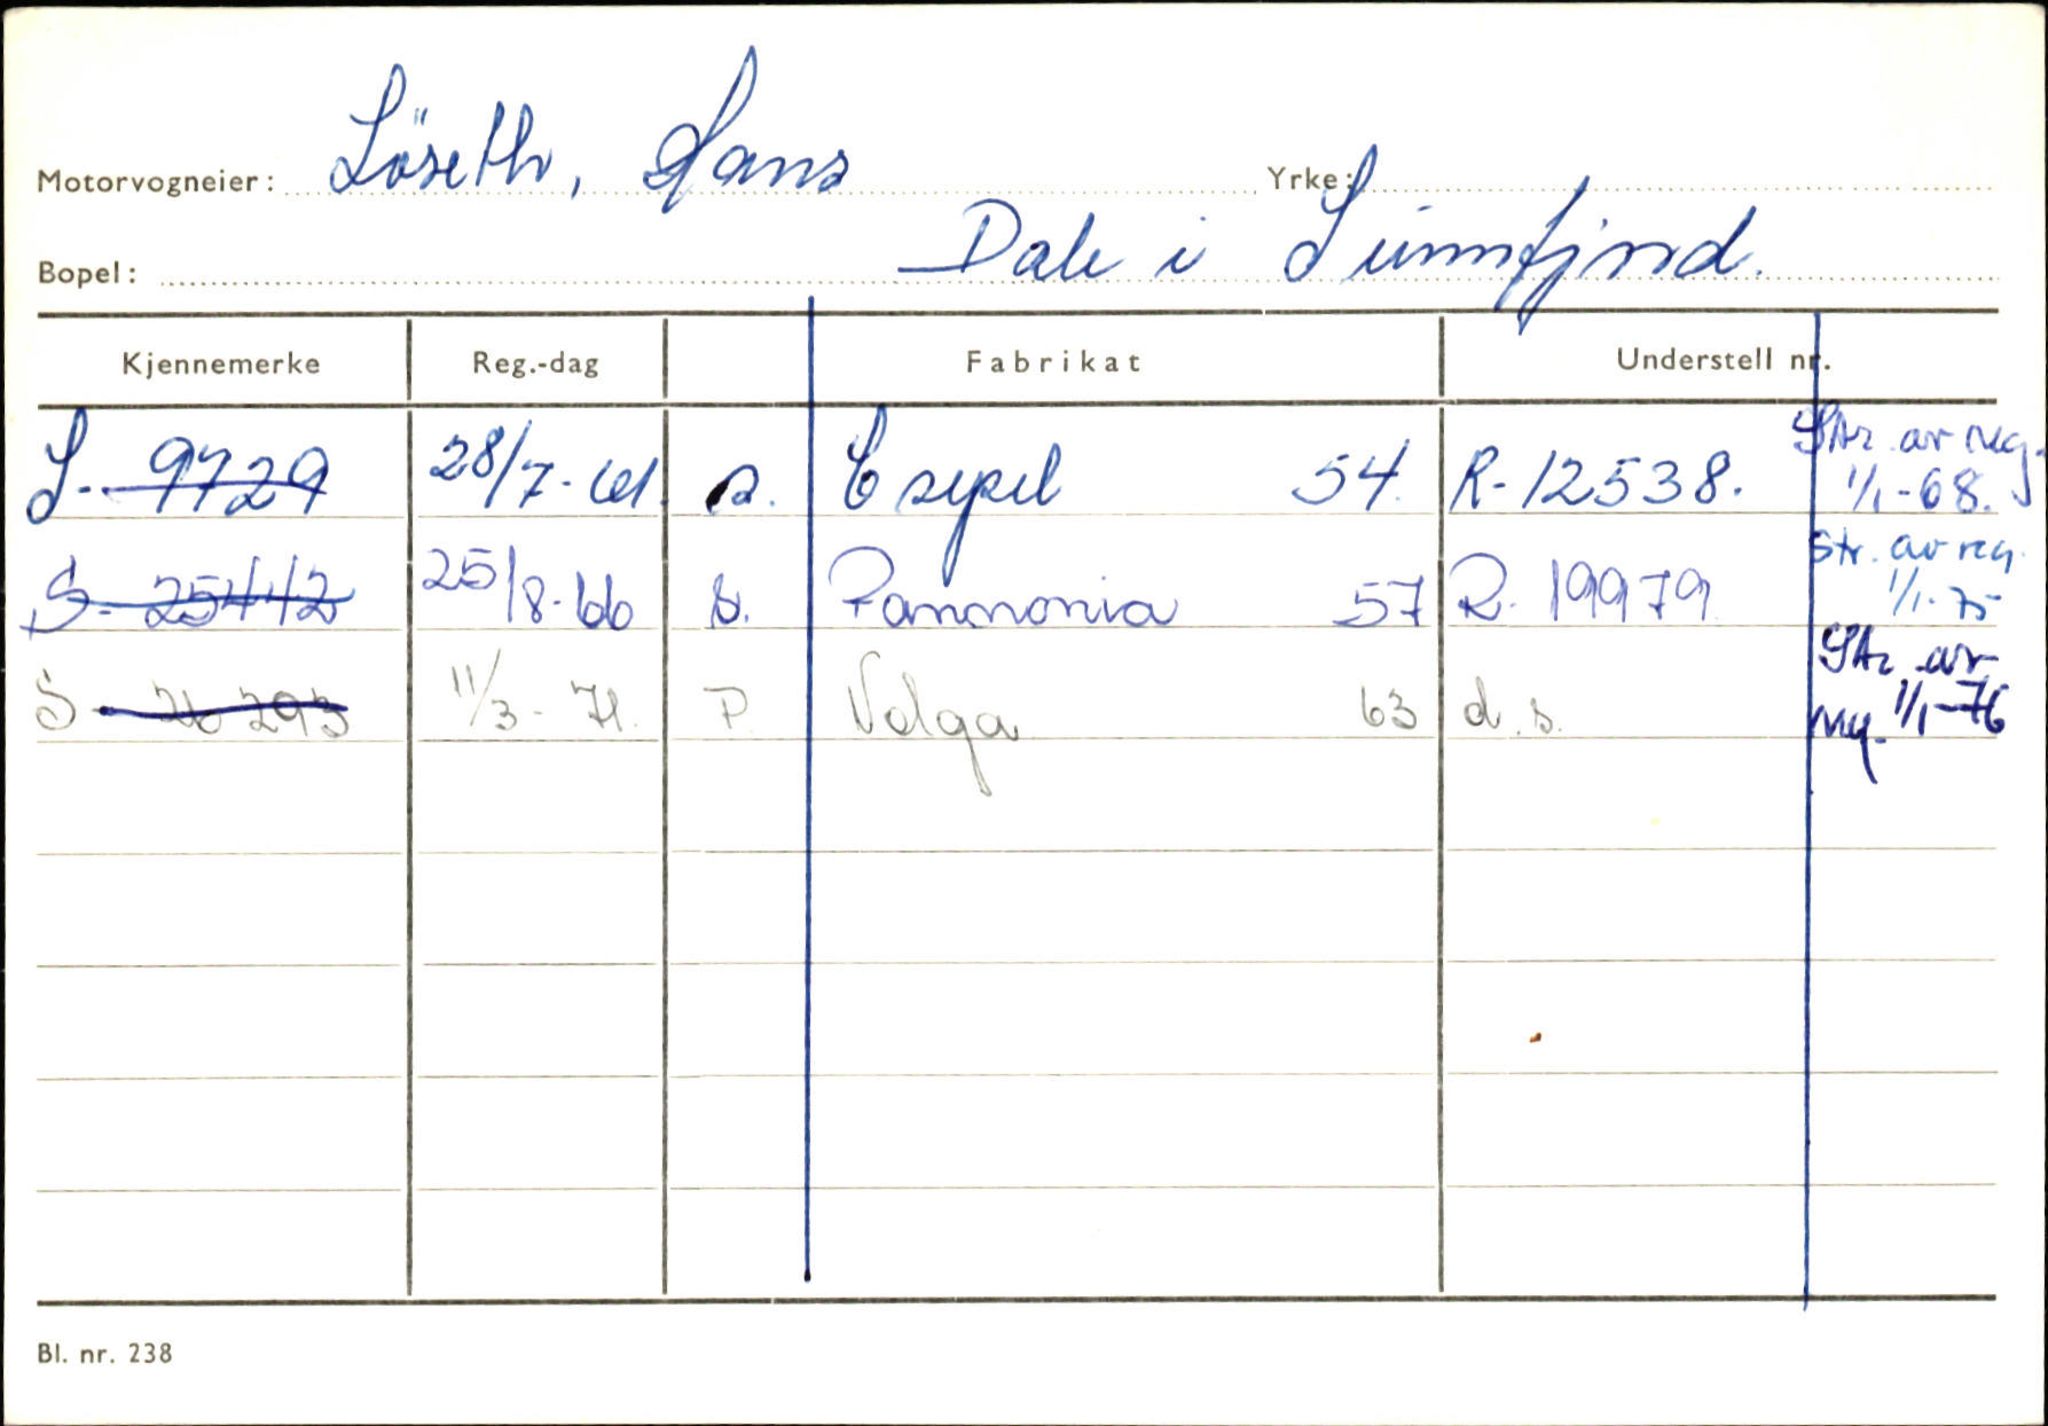 Motorvogneier: Löseth, Hans Yrke:
Bopel: Dale i Sunnfjord.
Kjennemerke Reg.-dag Fabrikat Understell nr.
S- 9729 28/7-61. s. Csepel 54. R-12538. Str. av reg. 1/1-68.
S- 25442 25/8-66 s. Pannonia 57 R- 19979 Str. av reg. 1/1-75
S- 26293 11/3-71. P. Volga 63 d.s. Str. av reg. 1/1-76
Bl. nr. 238